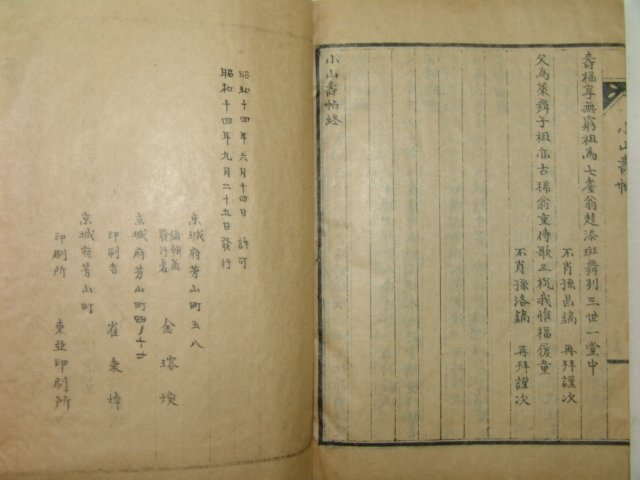 小山壽帖
壽福享無窮祖為七耋翁趍添班舞列三世一堂中
不肖孫昌鎬 再拜謹次
父為萊舞子祖亦古稀翁童侍歌三祝我惟福復童
不肖孫洛鎬 再拜謹次
小山壽帖終
昭和十四年六月十四日 許可
昭和十四年九月二十五日發行
京城府芳山町五八
編輯兼發行者 金瑢煥
京城府芳山町四ノ十七
印刷者 崔東焯
京城府芳山町
印刷所 東亞印刷所